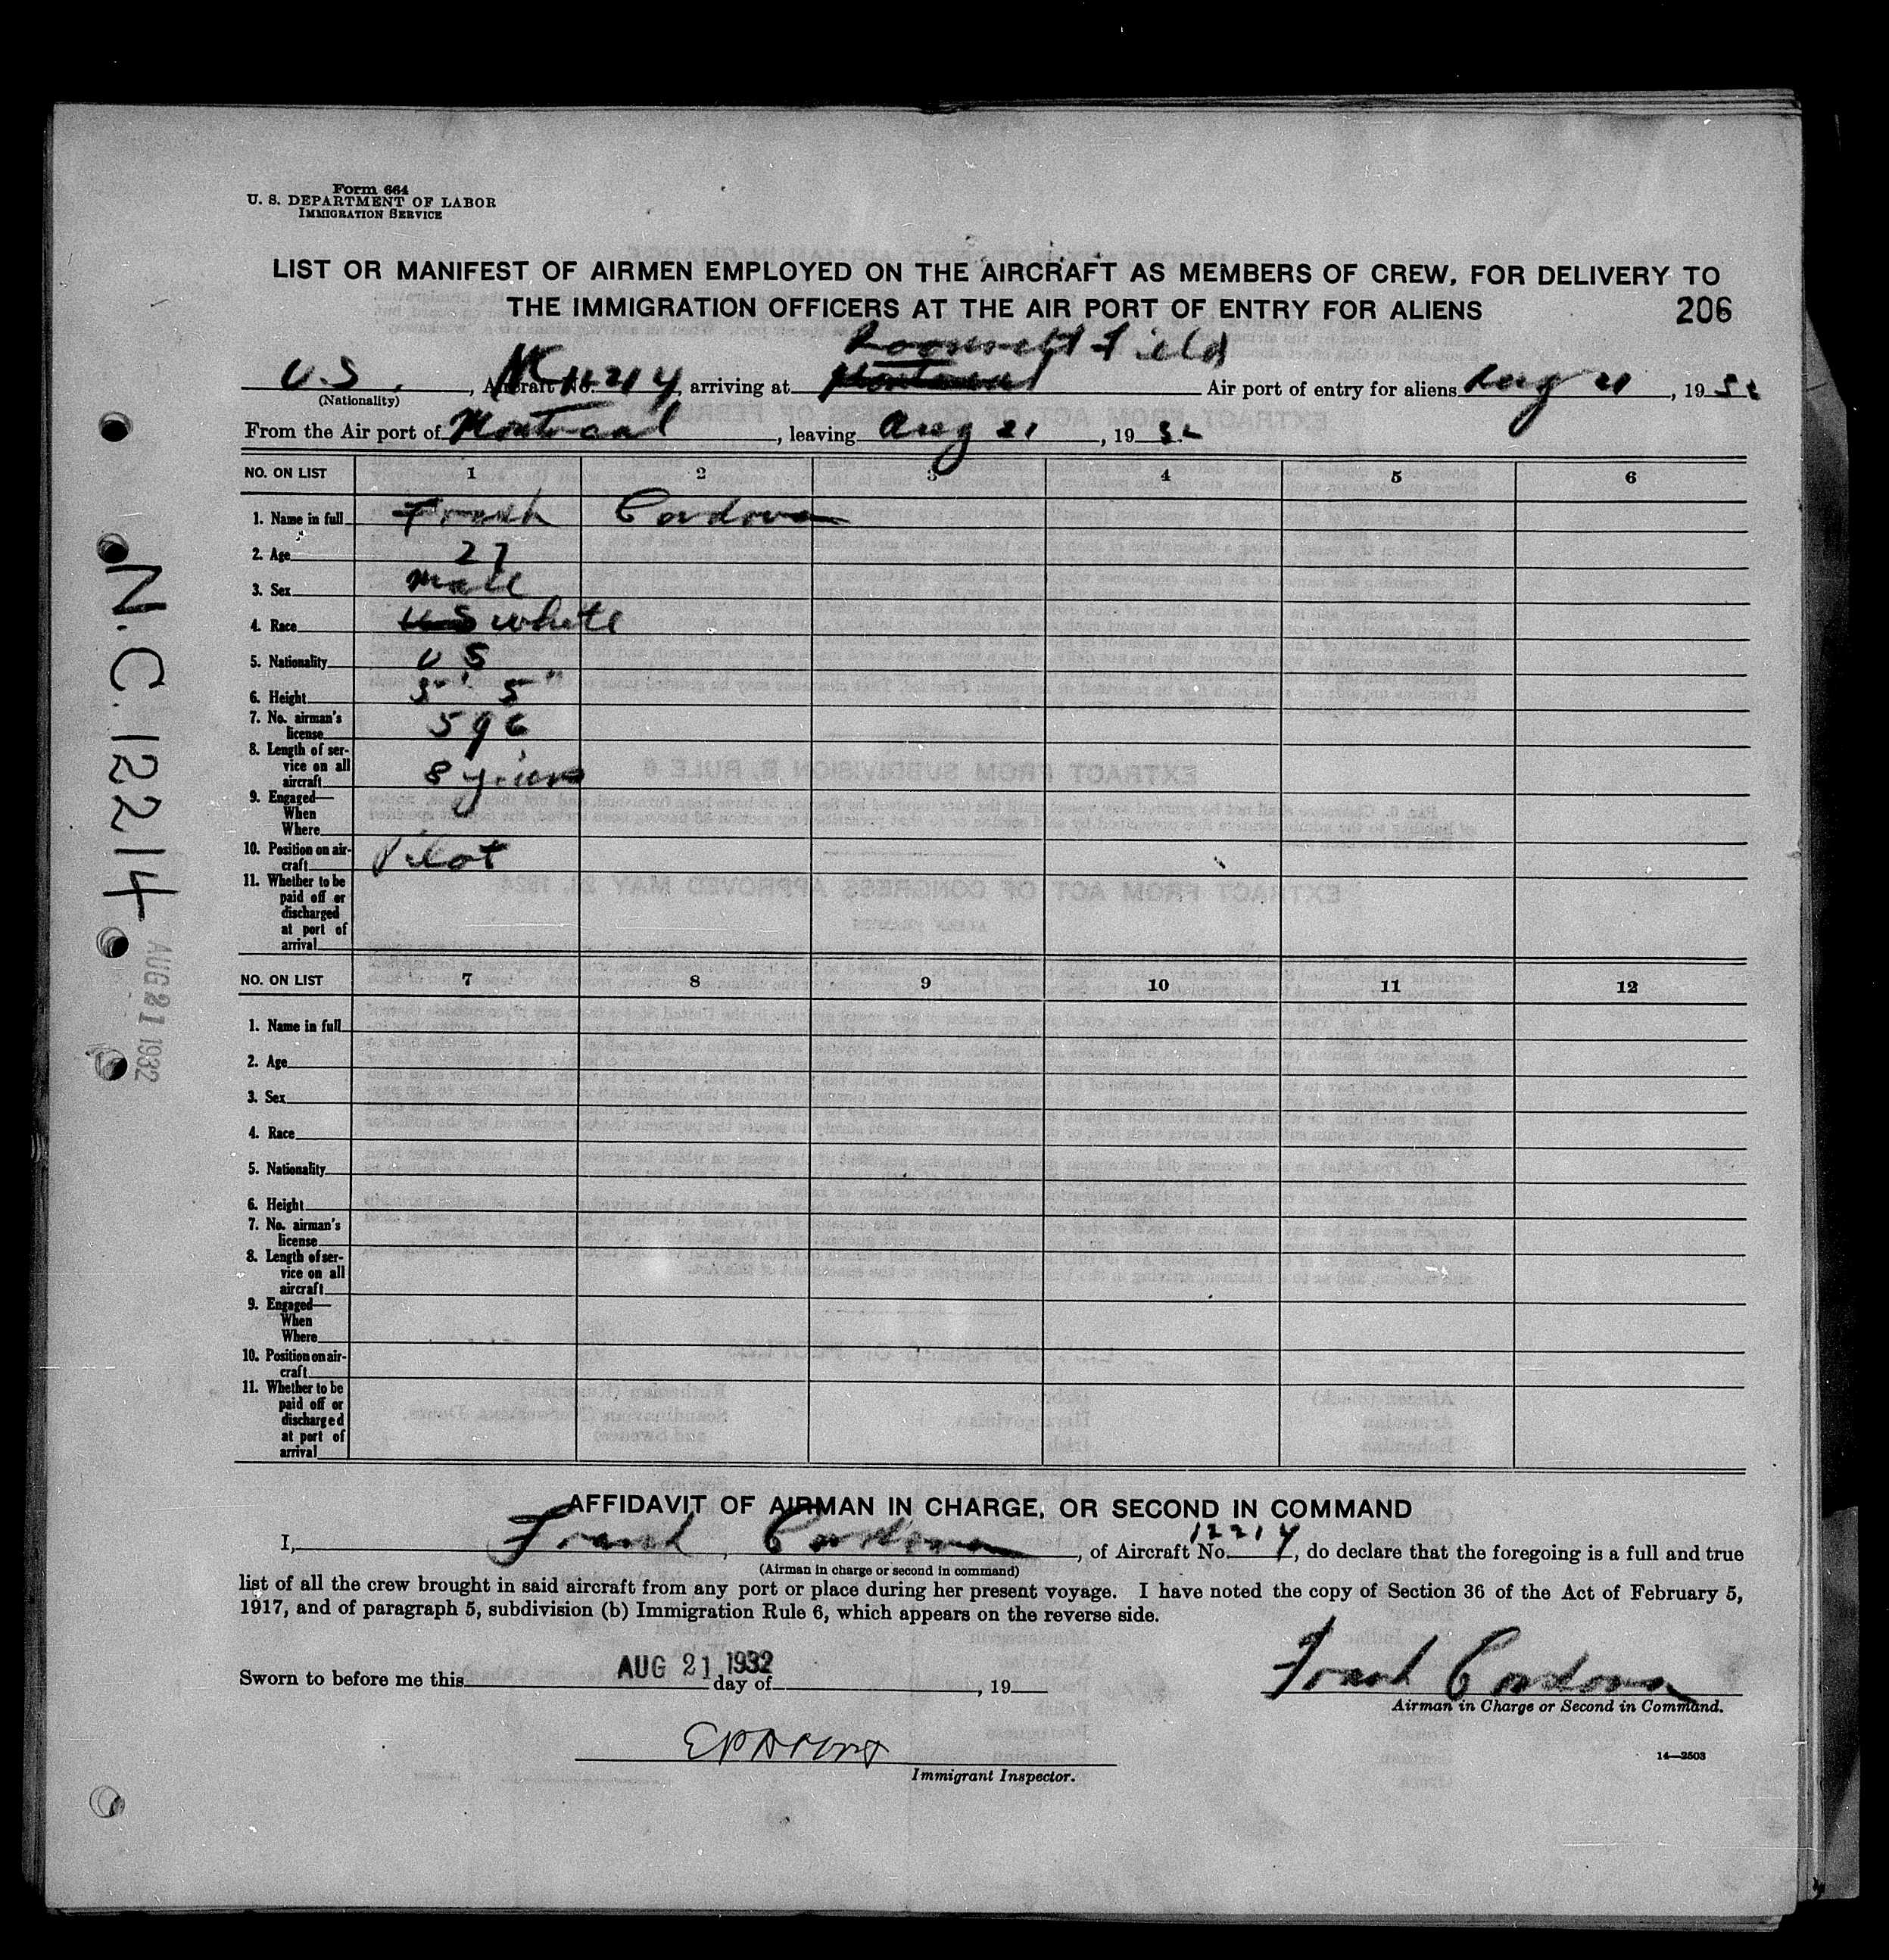 Form 664
U. S. DEPARTMENT OF LABOR
IMMIGRATION SERVICE
LIST OR MANIFEST OF AIRMEN EMPLOYED ON THE AIRCRAFT AS MEMBERS OF CREW, FOR DELIVERY TO
THE IMMIGRATION OFFICERS AT THE AIR PORT OF ENTRY FOR ALIENS
206
Roosevelt Field
U.S., Aircraft No. NC 12214, arriving at Montreal Air port of entry for aliens Aug 21, 1932
(Nationality)
From the Air port of Montreal, leaving Aug 21, 1932
NO. ON LIST 1 2 3 4 5 6
1. Name in full Frank Cordova
2. Age 27
3. Sex male
4. Race US white
5. Nationality US
6. Height 5' 5"
7. No. airman's
license 596
8. Length of ser-
vice on all
aircraft 8 years
9. Engaged—
When
Where
10. Position on air-
craft Pilot
11. Whether to be
paid off or
discharged
at port of
arrival
NO. ON LIST 7 8 9 10 11 12
1. Name in full
2. Age
3. Sex
4. Race
5. Nationality
6. Height
7. No. airman's
license
8. Length of ser-
vice on all
aircraft
9. Engaged—
When
Where
10. Position on air-
craft
11. Whether to be
paid off or
discharged
at port of
arrival
AFFIDAVIT OF AIRMAN IN CHARGE, OR SECOND IN COMMAND
I, Frank Cordova, of Aircraft No. 12214, do declare that the foregoing is a full and true
(Airman in charge or second in command)
list of all the crew brought in said aircraft from any port or place during her present voyage. I have noted the copy of Section 36 of the Act of February 5,
1917, and of paragraph 5, subdivision (b) Immigration Rule 6, which appears on the reverse side.
Sworn to before me this AUG 21 1932 day of , 19
Frank Cordova
Airman in Charge or Second in Command.
Immigrant Inspector.
14—2503
N.C. 12214
AUG 21 1932